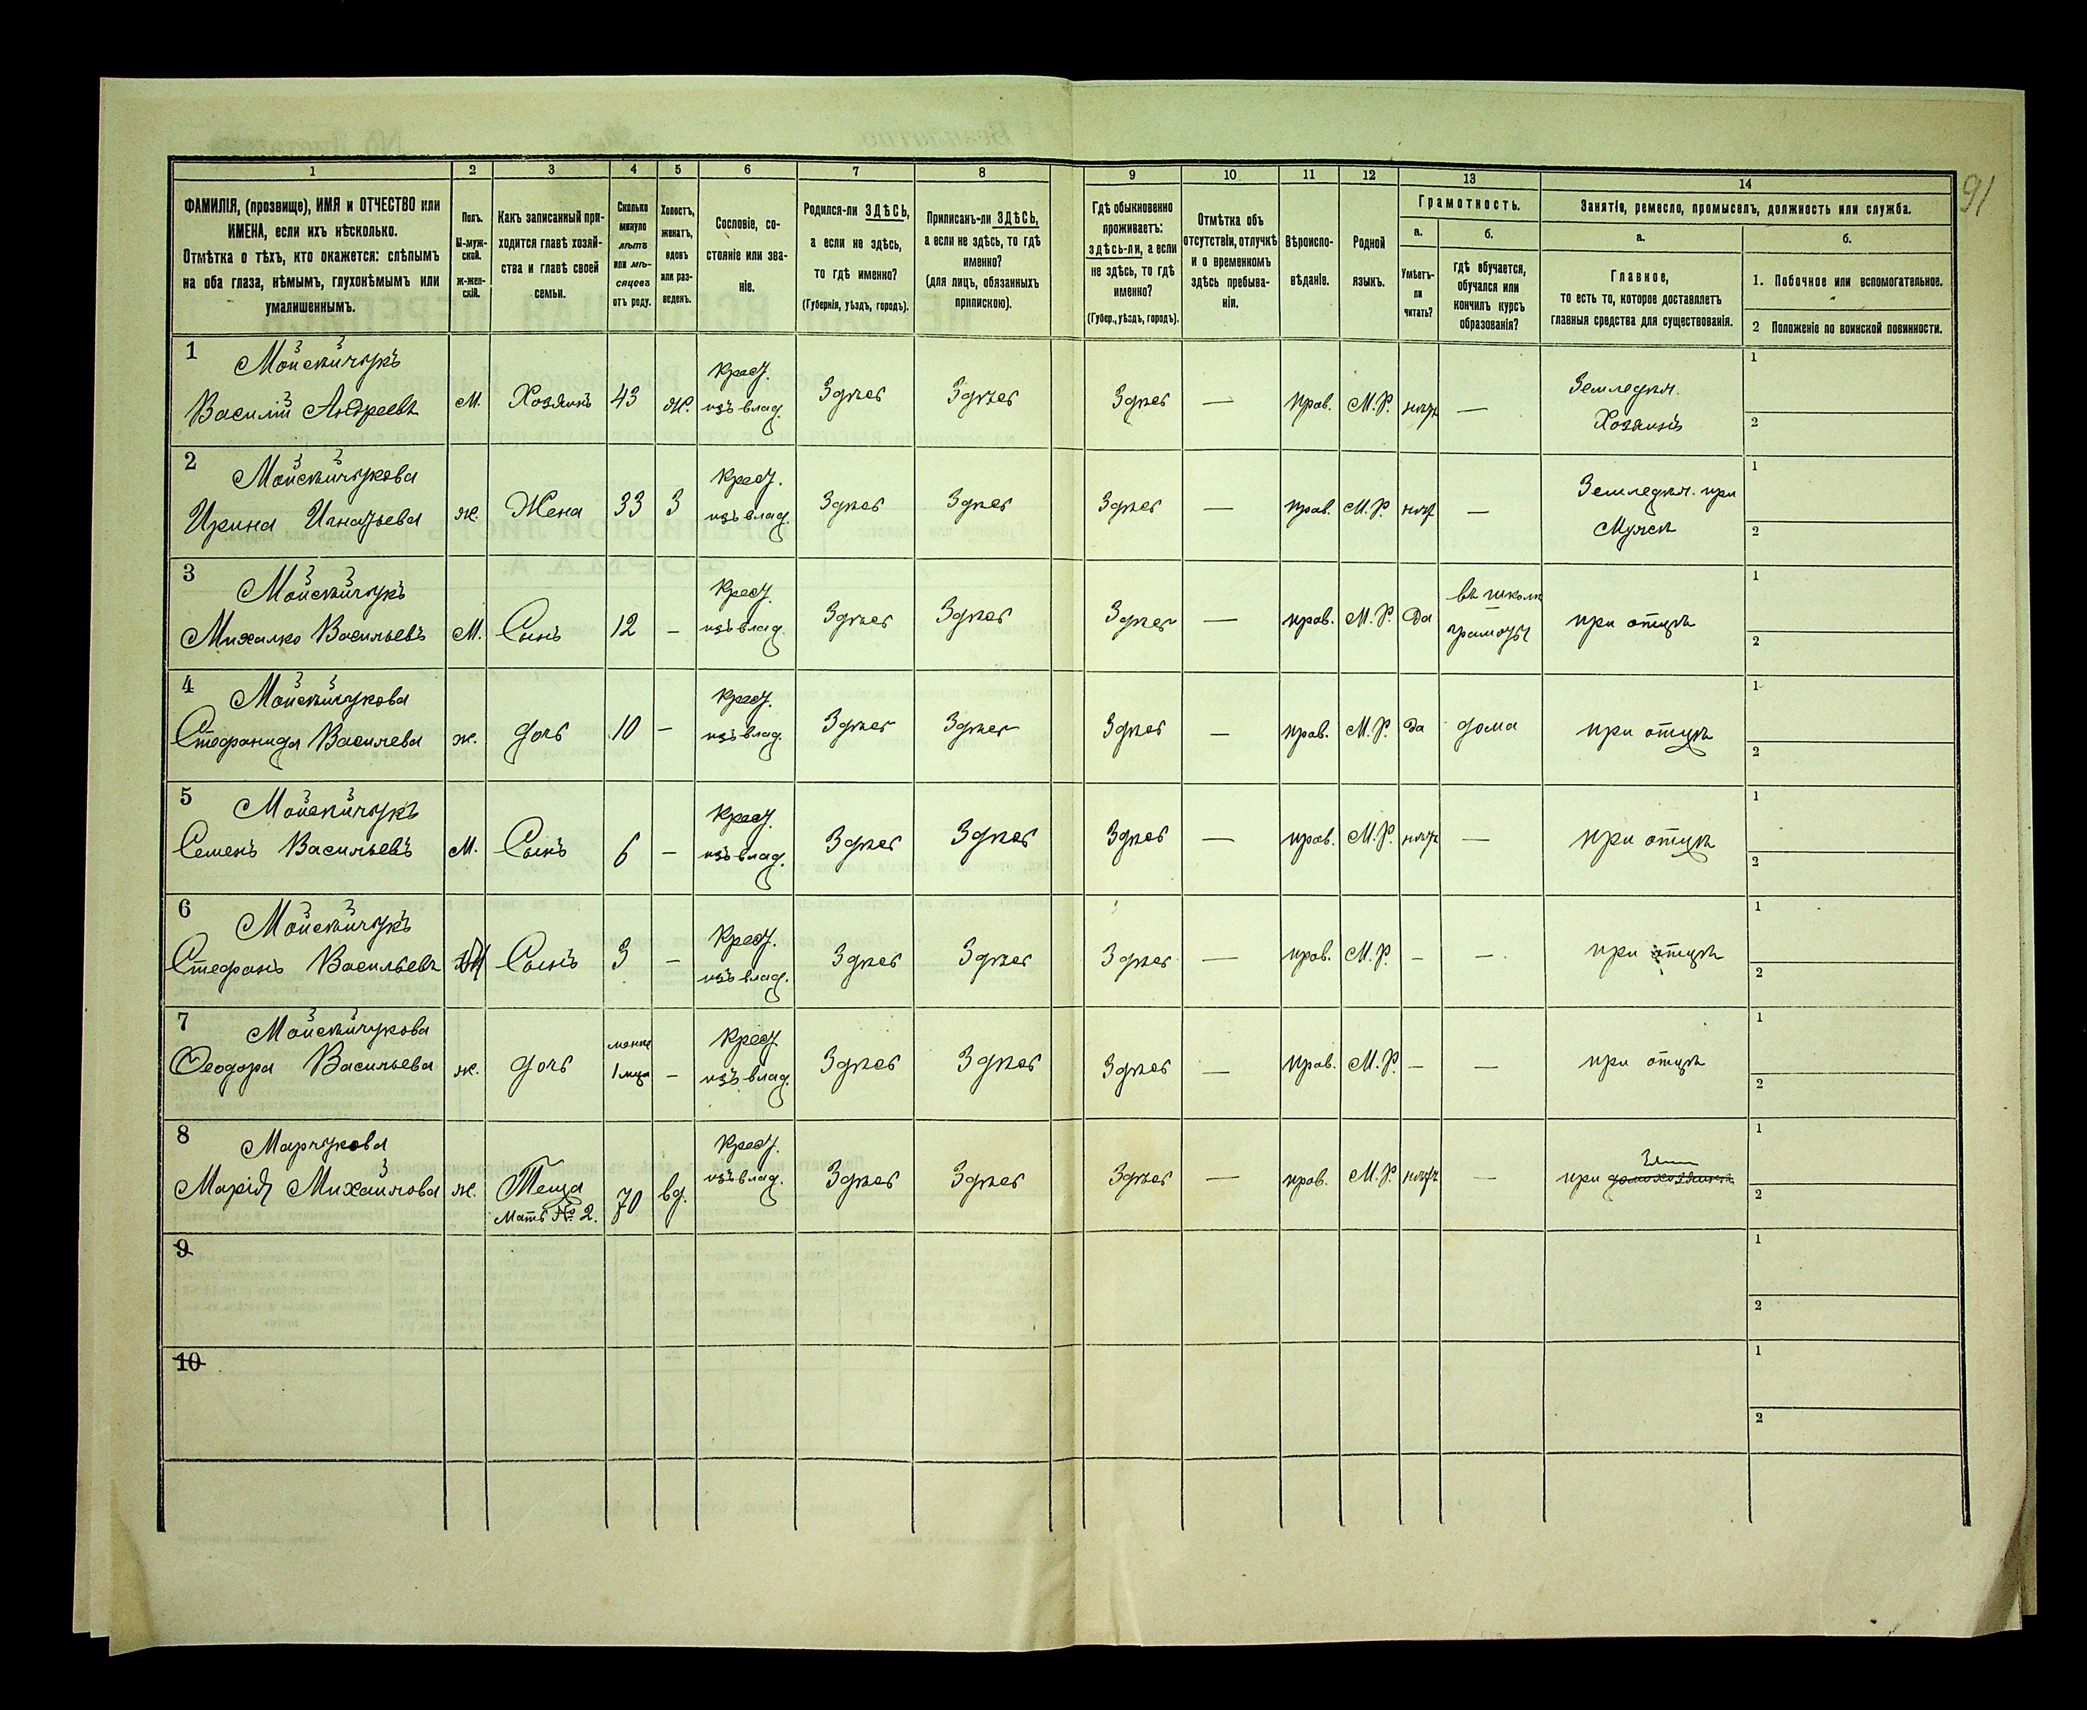 91
1 2 3 4 5 6 7 8 9 10 11 12 13 14
ФАМИЛІЯ, (прозвище), ИМЯ и ОТЧЕСТВО или
ИМЕНА, если ихъ нѣсколько.
Отмѣтка о тѣхъ, кто окажется: слѣпымъ
на оба глаза, нѣмымъ, глухонѣмымъ или
умалишеннымъ.
Полъ.
М-муж-
ской.
Ж-жен-
скій.
Какъ записанный при-
ходится главѣ хозяй-
ства и главѣ своей
семьи.
Сколько
минуло
лѣтъ
или мѣ-
сяцевъ
отъ роду.
Холостъ,
женатъ,
вдовъ
или раз-
веденъ.
Сословіе, со-
стояніе или зва-
ніе.
Родился-ли ЗДѢСЬ,
а если не здѣсь,
то гдѣ именно?
(Губернія, уѣздъ, городъ).
Приписанъ-ли ЗДѢСЬ,
а если не здѣсь, то гдѣ
именно?
(для лицъ, обязанныхъ
припискою).
Гдѣ обыкновенно
проживаетъ:
здѣсь-ли, а если
не здѣсь, то гдѣ
именно?
(Губер., уѣздъ, городъ).
Отмѣтка объ
отсутствіи, отлучкѣ
и о временномъ
здѣсь пребыва-
ніи.
Вѣроиспо-
вѣданіе.
Родной
языкъ.
Грамотность.
а.
Умѣетъ-
ли
читать?
б.
гдѣ обучается,
обучался или
кончилъ курсъ
образованія?
Занятіе, ремесло, промыселъ, должность или служба.
а.
Главное,
то есть то, которое доставляетъ
главныя средства для существованія.
б.
1. Побочное или вспомогательное.
2 Положеніе по воинской повинности.
1 Мойсѣйчукъ крест. Земледѣл. 1
Василій Андреевъ М. Хозяинъ 43 Ж. изъ влад. Здѣсь Здѣсь Здѣсь — прав. М.Р. нѣтъ — Хозяинъ 2
2 Мойсѣйчукова крест. Земледѣл. при 1
Ирина Игнатьева ж. Жена 33 З изъ влад. Здѣсь Здѣсь Здѣсь — прав. М.Р. нѣтъ — Мужѣ 2
3 Мойсѣйчукъ крест. въ школѣ 1
Михалко Васильевъ М. Сынъ 12 — изъ влад. Здѣсь Здѣсь Здѣсь — прав. М.Р. Да грамоты при отцѣ 2
4 Мойсѣйчукова крест. 1
Стефанида Василева ж. дочь 10 — изъ влад. Здѣсь Здѣсь Здѣсь — прав. М.Р. да дома при отцѣ 2
5 Мойсѣйчукъ крест. 1
Семенъ Васильевъ М. Сынъ 6 — изъ влад. Здѣсь Здѣсь Здѣсь — прав. М.Р. нѣтъ — при отцѣ 2
6 Мойсѣйчукъ крест. 1
Стефанъ Васильевъ М Сынъ 3 — изъ влад. Здѣсь Здѣсь Здѣсь — прав. М.Р. — — при отцѣ 2
7 Мойсѣйчукова менѣе крест 1
Феодора Васильева ж. дочь 1 мца — изъ влад. Здѣсь Здѣсь Здѣсь — прав. М.Р. — — при отцѣ 2
8 Марчукова крест. 1
Марія Михайлова ж. Теща 70 вд. изъ влад. Здѣсь Здѣсь Здѣсь — прав. М.Р. нѣтъ — при домохозяинѣ 2
Мать № 2.
9 1
2
10 1
2